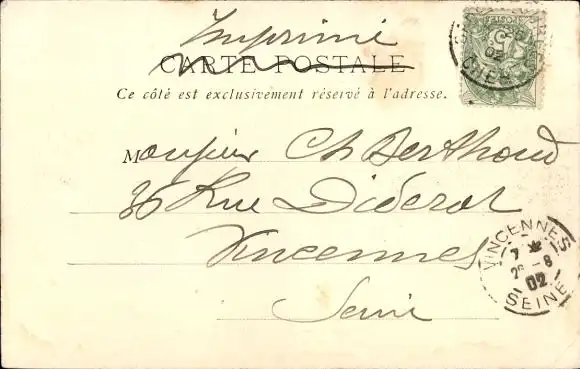 Imprimé
CARTE POSTALE
Ce côté est exclusivement réservé à l'adresse.
Monsieur Ch Berthoud
36 Rue Diderot
Vincennes
Seine
POSTES
5
02
CHER
VINCENNES
7
-8
02
SEINE